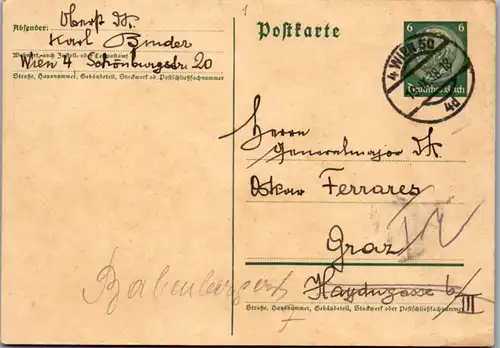 1
Absender: Oberst dR.
Karl Binder
Wohnort, auch Zustell- oder Leitpostamt
Wien 4 Schönburgstr. 20
Straße, Hausnummer, Gebäudeteil, Stockwerk od. Postschließfachnummer
Postkarte
6 6
Deutsches Reich
4 WIEN 50
4d
Herrn
Generalmajor dR
Oskar Ferrares
Graz
Haydngasse 6
III
Straße, Hausnummer, Gebäudeteil, Stockwerk oder Postschließfachnummer